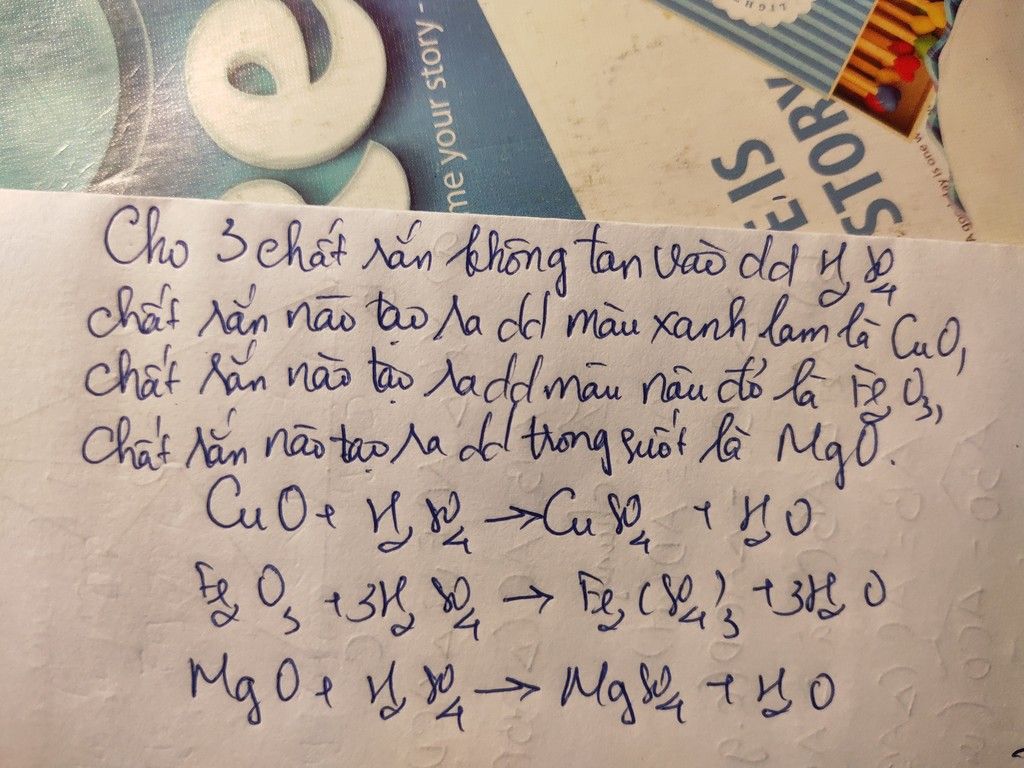 LIGHT
me your story -
E IS
STORY
Cho 3 chất rắn không tan vào dd H2SO4
chất rắn nào tạo ra dd màu xanh lam là CuO,
chất rắn nào tạo ra dd màu nâu đỏ là Fe2O3,
chất rắn nào tạo ra dd trong suốt là MgO.
CuO + H2SO4 → CuSO4 + H2O
Fe2O3 + 3H2SO4 → Fe2(SO4)3 + 3H2O
MgO + H2SO4 → MgSO4 + H2O